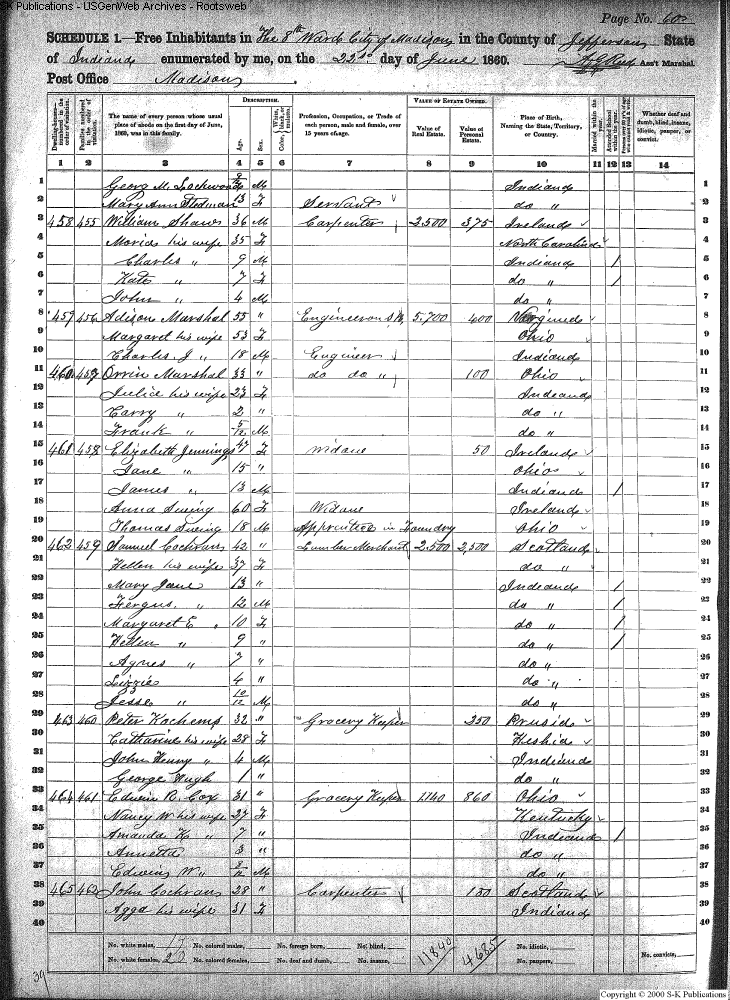 S-K Publications - USGenWeb Archives - Rootsweb
Page No. 60
SCHEDULE 1.—Free Inhabitants in The 8th Ward City of Madison in the County of Jefferson State
of Indiana enumerated by me, on the 22nd day of June 1860. Ass't Marshal.
Post Office Madison
Dwelling-houses numbered in the order of visitation. Families numbered in the order of visitation. The name of every person whose usual place of abode on the first day of June, 1860, was in this family. DESCRIPTION. Age. Sex. Color, White, black, or mulatto. Profession, Occupation, or Trade of each person, male and female, over 15 years of age. VALUE OF ESTATE OWNED. Value of Real Estate. Value of Personal Estate. Place of Birth, Naming the State, Territory, or Country. Married within the year. Attended School within the year. Whether deaf and dumb, blind, insane, idiotic, pauper, or convict.
1 2 3 4 5 6 7 8 9 10 11 12 13 14
1 Georg M. Lockwood M Indiana 1
2 Mary Ann 13 F Servant do " 2
3 458 455 William Shaw 36 M Carpenter 2,500 375 Ireland 3
4 Moriah his wife 35 F North Carolina 4
5 Charles " 9 M Indiana / 5
6 Kate " 7 F do " / 6
7 John " 4 M do " 7
8 459 456 Adison Marshal 55 " Engineer on 5,700 400 Virginia 8
9 Margaret his wife 53 F Ohio 9
10 Charles J " 18 M Engineer Indiana 10
11 460 457 Orrin Marshal 33 " do do " 100 Ohio 11
12 Julia his wife 23 F Indiana 12
13 Carry " 2 " do " 13
14 Frank " 5/12 M do " 14
15 461 458 Elizabeth Jennings 47 F Widow 50 Ireland 15
16 Jane " 15 " Ohio 16
17 James " 13 M Indiana / 17
18 Anna 60 F Widow Ireland 18
19 Thomas 18 M Apprentice in Foundry Ohio 19
20 462 459 Samuel Cochran 42 " Lumber Merchant 2,500 2,500 Scotland 20
21 Hellen his wife 37 F do " 21
22 Mary Jane 13 " Indiana / 22
23 Fergus " 12 M do " / 23
24 Margaret E " 10 F do " / 24
25 Hellen " 9 " do " / 25
26 Agnes " 7 " do " 26
27 Lizzie 4 " do " 27
28 Jesse " 10/12 M do " 28
29 463 460 Peter Kochems 32 " Grocery Keeper 250 Prusia 29
30 Catharine his wife 28 F 30
31 John Henry " 4 M Indiana 31
32 George Hugh 1 " do " 32
33 464 461 Edwin R. Cox 31 " Grocery Keeper 1140 860 Ohio 33
34 Nancy W his wife 27 F Kentucky 34
35 Amanda K " 7 " Indiana / 35
36 Annetta 3 " do " 36
37 Edwin W " M do " 37
38 465 462 John Cochran 28 " Carpenter 150 Scotland 38
39 Agga his wife 31 F Indiana 39
40 40
No. white males, 17 No. colored males, No. foreign born, No. blind, 11840 4685 No. idiotic,
No. white females, No. colored females, No. deaf and dumb, No. insane, No. paupers, No. convicts,
39
Copyright © 2000 S-K Publications